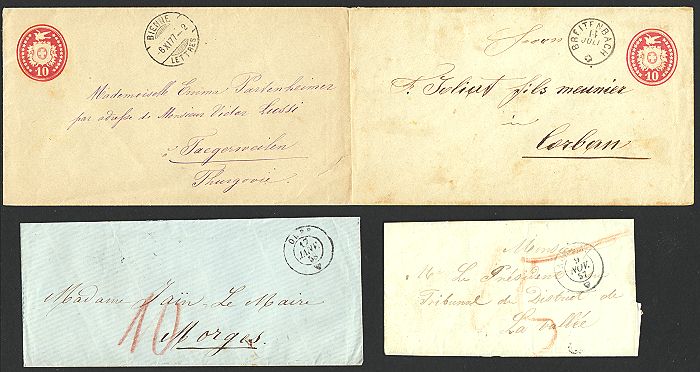 10
BIENNE
6 XI 77 - 2
LETTRES
Mademoiselle Emma Partenheimer
par adresse de Monsieur Victor Lussi
à Taegerweilen
Thurgovie.
Herrn
BREITENBACH
11
JULI
10
F. Joliat fils meunier
in
Corban
17
JANV
58
Madame Jaïn Le Maire
10
Morges.
Monsieur
9
NOV
57
Mr Le Président
Tribunal de District de
La Vallée